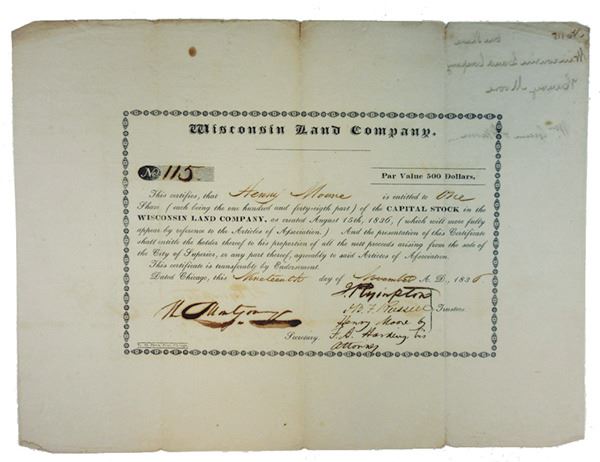 Wisconsin Land Company.
No 115.
Par Value 500 Dollars.
This certifies, that Henry Moore is entitled to One
Share (each being the one hundred and forty-sixth part) of the CAPITAL STOCK in the
WISCONSIN LAND COMPANY, as created August 15th, 1836, (which will more fully
appear by reference to the Articles of Association.) And the presentation of this Certificate
shall entitle the holder thereof to his proportion of all the nett proceeds arising from the sale of
the City of Superior, or any part thereof, agreeably to said Articles of Association.
This certificate is transferable by Endorsement.
Dated Chicago, this Nineteenth day of November A. D., 1836
Trustees
Henry Moore by
F. A. Harding his
attorney
Secretary.